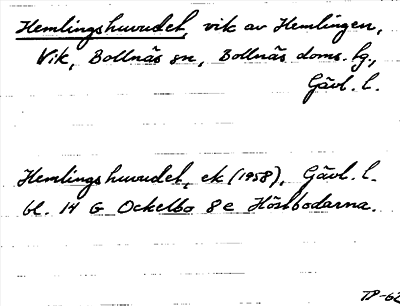 Hemlingshuvudet, vik av Hemlingen,
Vik, Bollnäs sn, Bollnäs doms. hg,
Gävl. l.
Hemlingshuvudet, ek (1958), Gävl. l.
bl. 14 G Ockelbo 8e Höstbodarna.
TP-62